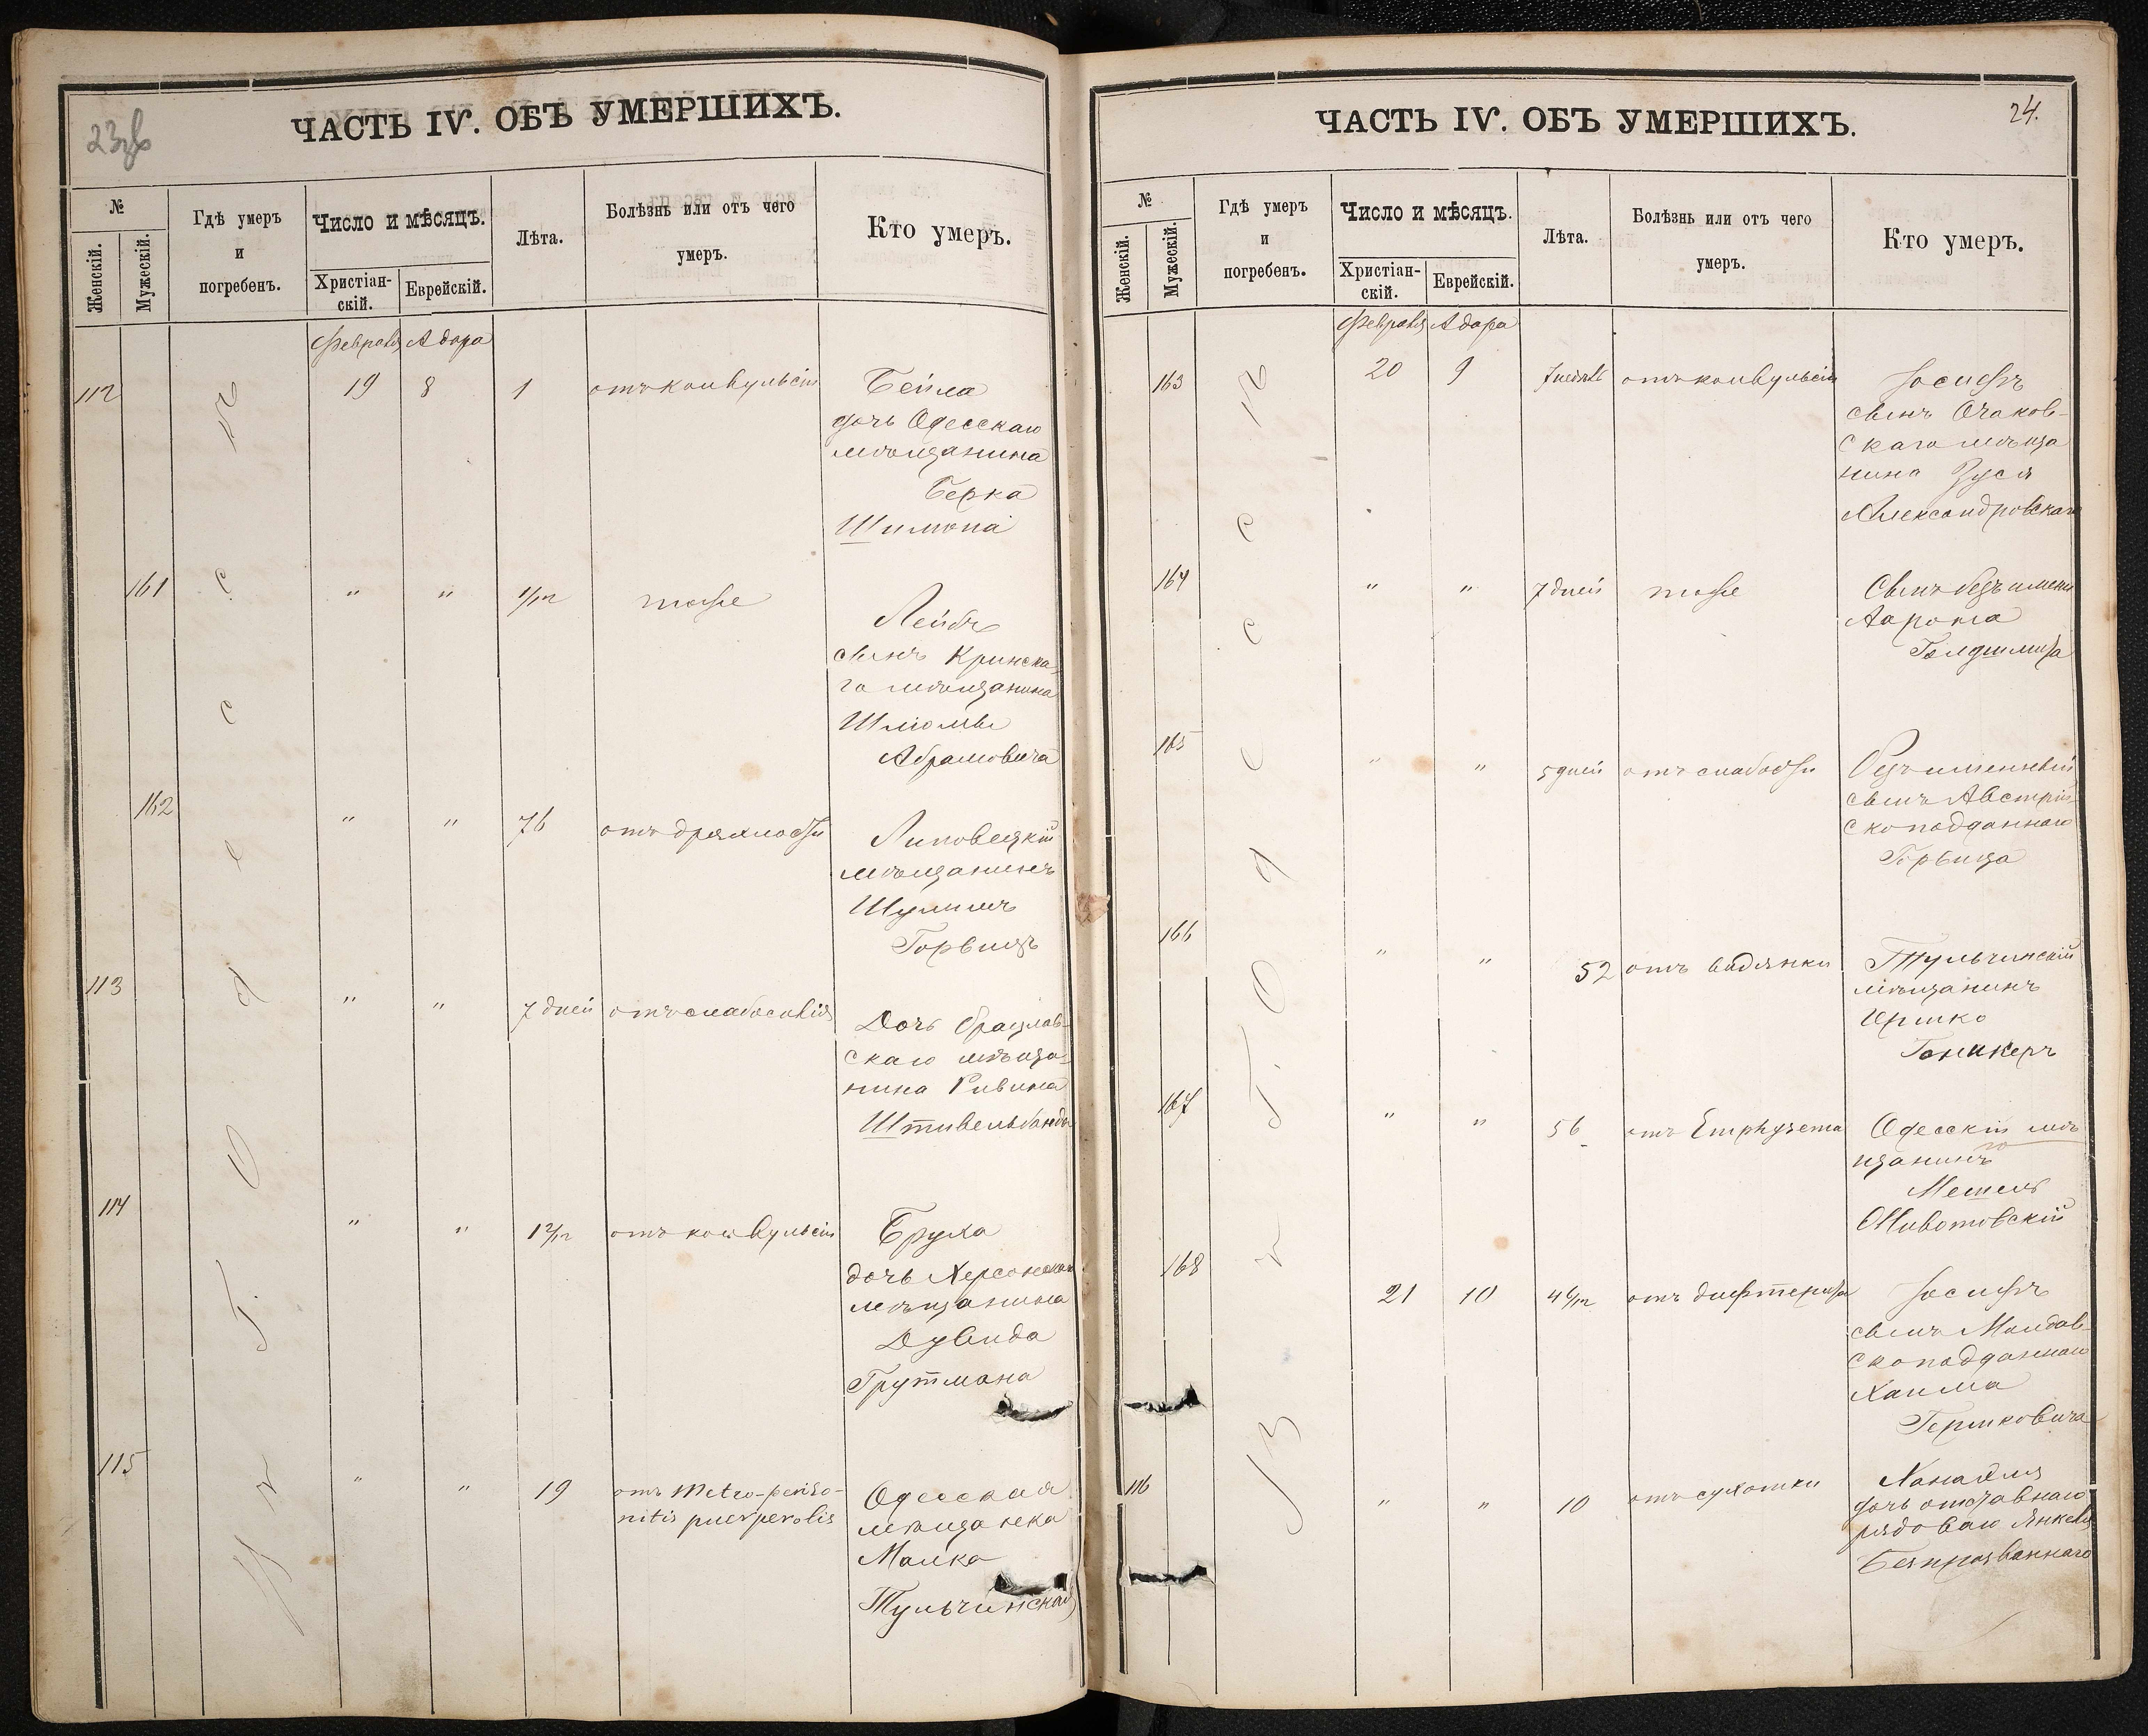 23об
ЧАСТЬ IV. ОБЪ УМЕРШИХЪ.
№
Женскій.
Мужескій.
Гдѣ умеръ
и
погребенъ.
Число и мѣсяцъ.
Христіан-
скій.
Еврейскій.
Лѣта.
Болѣзнь или отъ чего
умеръ.
Кто умеръ.
Февраля Адара
112 19 8 1 отъ конвульсіи Бейла
дочь Одесскаго
мѣщанина
Берка
Шимона
161 " " 1/12 тоже Лейбъ
сынъ Кринска-
го мѣщанина
Шліомы
Абрамовича
162 " " 76 отъ дряхлости Липовецкій
мѣщанинъ
Шулимъ
Горвицъ
113 " " 7 дней отъ слабосилія Дочь брацлав-
скаго мѣща-
нина Ривина
Штивельбанда
114 " " 1 2/12 отъ конвульсіи Бруха
дочь Херсонскаго
мѣщанина
Дувида
Грутмана
115 " " 19 отъ Metro-perito-
nitis puerperalis
Одесская
мѣщанека
Малка
Тульчинская
Въ г. Одессѣ
24.
ЧАСТЬ IV. ОБЪ УМЕРШИХЪ.
№
Женскій.
Мужескій.
Гдѣ умеръ
и
погребенъ.
Число и мѣсяцъ.
Христіан-
скій.
Еврейскій.
Лѣта.
Болѣзнь или отъ чего
умеръ.
Кто умеръ.
Февраля Адара
163 20 9 отъ конвульсіи Іосифъ
сынъ Очаков-
скаго мѣща
нина Зуся
Александровскаго
164 " " 7 дней тоже Сынъ безъ имени
Аарона
165 " " 5 дней отъ слабости Безъименный
сынъ Австрій-
скоподданнаго
Горвица
166 " " 52 отъ водянки Тульчинскій
мѣщанинъ
Ицко
167 " " 56 отъ Emphysema Одесскій мѣ
щанинъ
Мешель
Животовскій
168 21 10 4 6/12 отъ дифтерита Іосифъ
сынъ Молдав-
скоподданнаго
Хаима
Гершковича
116 " " 10 отъ сухотки
дочь отставнаго
рядоваго Янкеля
Безпрозваннаго
Въ г. Одессѣ